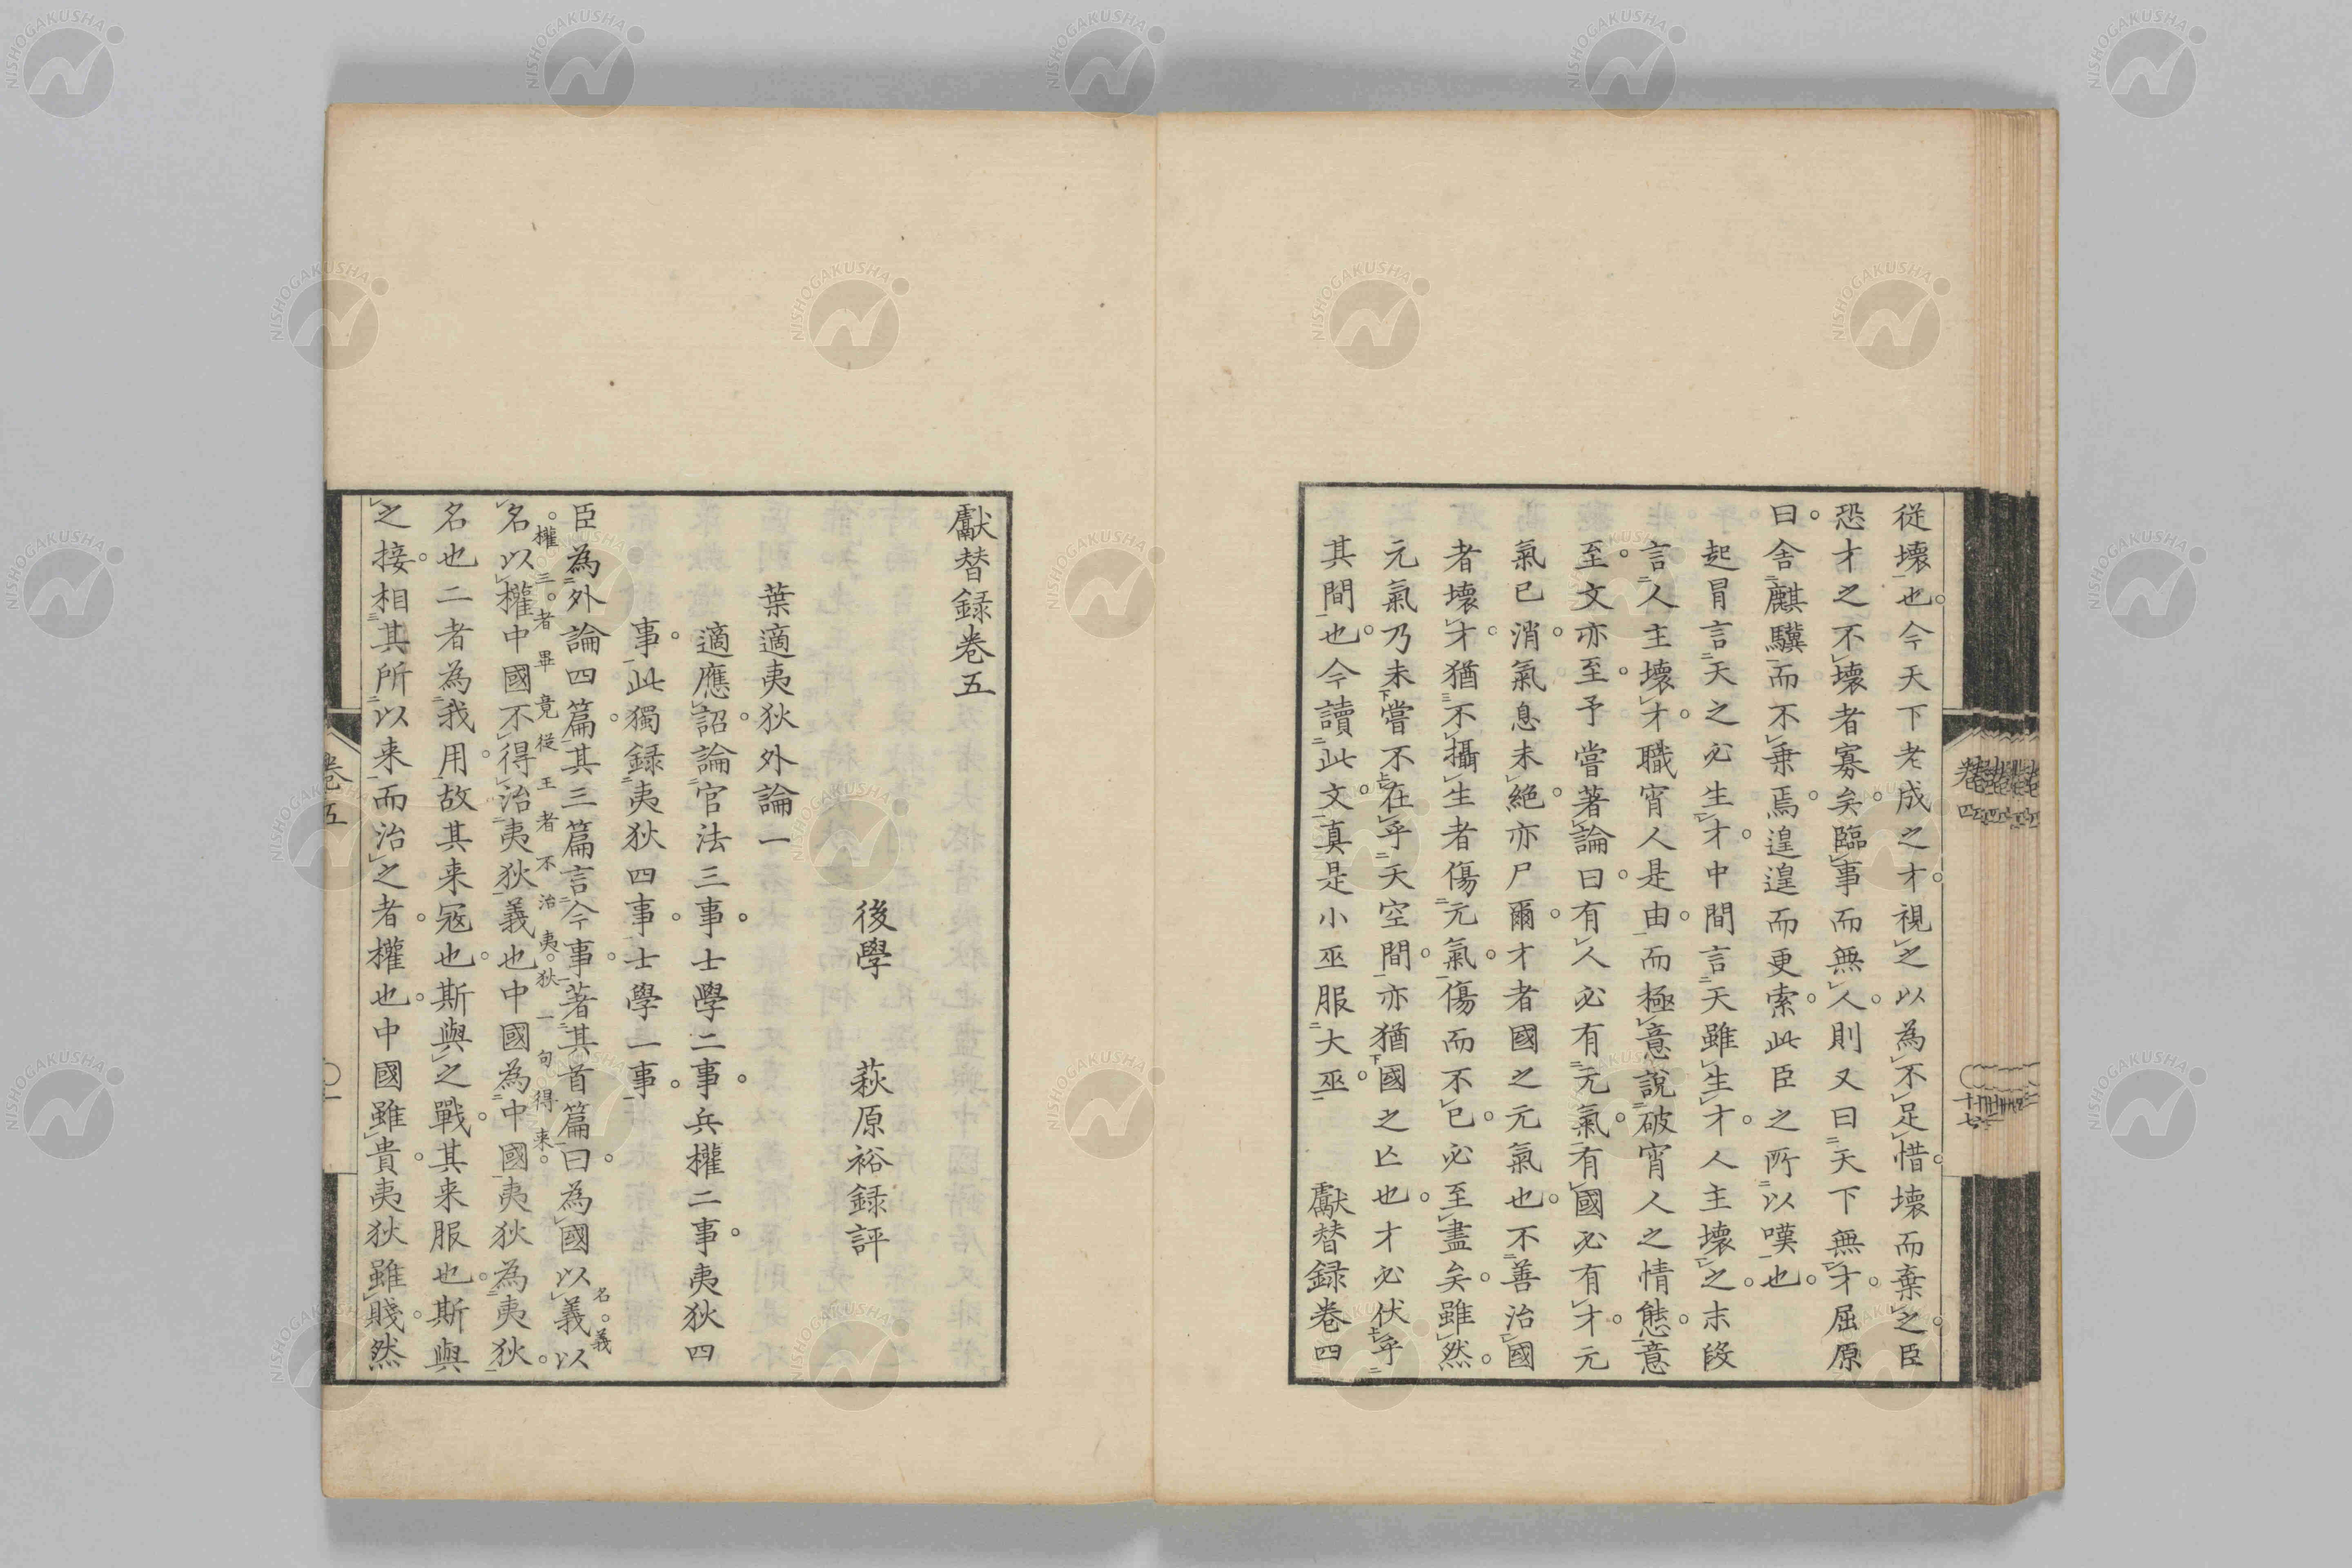 從壞也。今天下老成之才。視之以為不足惜。壞而棄之。臣
恐才之不壞者寡矣。臨事而無人。則又曰天下無才。屈原
曰。舍麒驥而不乗焉。遑遑而更索。此臣之所以嘆也。
起冒言天之必生才。中間言天雖生才。人主壞之。末段
言人主壞才。職宵人是由。而極意說破宵人之情態。意
至。文亦至。予嘗著論曰。有人必有元氣。有國必有才。元
氣已消。氣息未絶。亦尸爾。才者國之元氣也。不善治國
者壞才。猶不攝生者傷元氣。傷而不已。必至盡矣。雖然。
元氣乃未嘗不在乎天空間。亦猶國之亡也。才必伏乎
其間也。今讀此文。真是小巫服大巫。 獻替録卷四
卷四
十七
獻替録卷五
後學 萩原裕録評
葉適夷狄外論一
適應詔論官法三事。士學二事。兵權二事。夷狄四
事。此獨録夷狄四事。士學一事。
臣為外論四篇。其三篇言今事。著其首篇曰。為國以義以
名。義
。權三。者畢竟從王者不治夷。狄一句得来。
名以權。中國不得治夷狄義也。中國為中國。夷狄為夷狄。
名也。二者為我用。故其来寇也。斯與之戰。其来服也。斯與
之接。相其所以来而治之者。權也。中國雖貴。夷狄雖賤。然
卷五
〇一
NISHOGAKUSHA